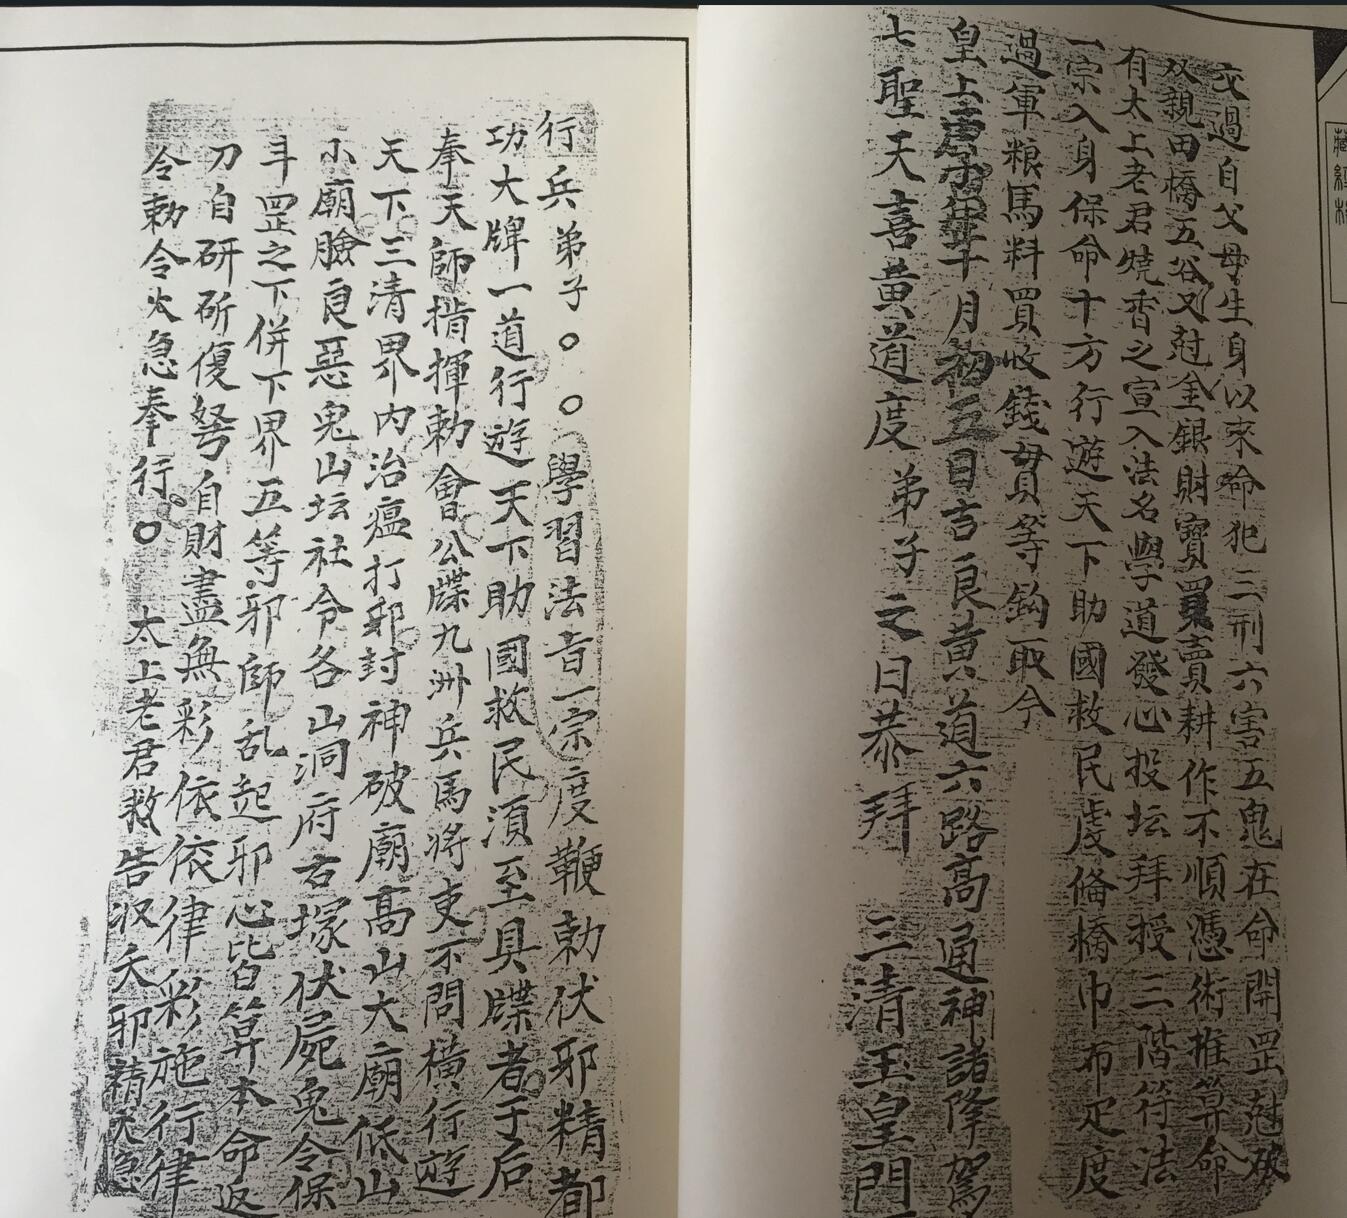 交過自父母生身以來命犯三刑六害五鬼在命開罡尅破
双親田橋五谷又尅金銀財寳買賣耕作不順憑術推算命
有太上老君燒香之宣入法名學道發心投坛拜授三階符法
一宗入身保命十方行遊天下助國救民虔俻橋巾布疋度
過軍粮馬料買收錢貫等鈎取今
皇上庚子年十月初五日吉良黄道六路高通神諸降駕
七聖天喜黄道度 弟子之日恭拜 三清玉皇門
藏經
行兵弟子○ ○學習法音一宗度鞭勅伏邪精都
功大牌一道行遊天下助國救民湏至具牒者于后
奉天師指揮勅會公牒九洲兵馬將吏不問橫行遊
天下三清界內治瘟打邪封神破廟高山大廟低山
小廟臉良惡鬼山坛社令各山洞府古塚伏屍鬼令保
斗罡之下併下界五等邪師乱起邪心比白算本命返
刀自研斫復弩自財盡無彩依依律彩施行律
令勅令火急奉行○ 太上老君救告収夭邪精火急